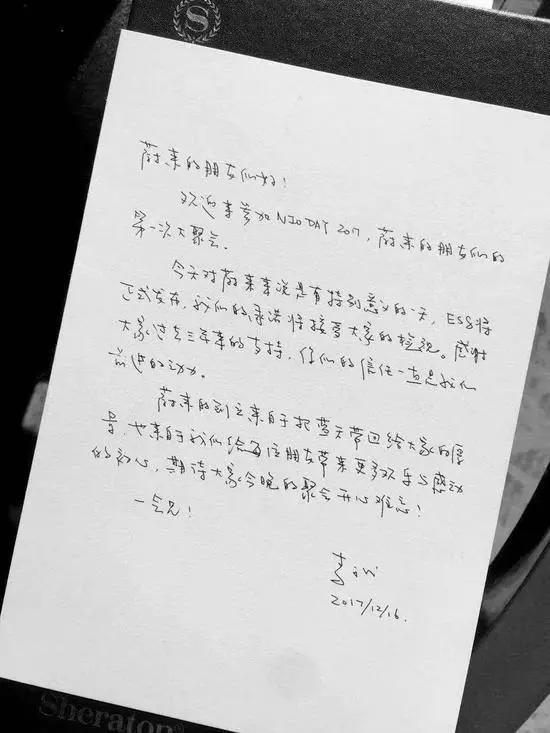 蔚来的朋友们好!
欢迎来参加NIO DAY 2017, 蔚来的朋友们的
第一次大聚会.
今天对蔚来来说是有特别意义的一天, ES8将
正式发布, 我们的承诺将接受大家的检视。感谢
大家过去三年来的支持, 你们的信任一直是我们
前进的动力。
蔚来的创立来自于把蓝天带回给大家的愿
景, 也来自于我们给每位朋友带来更多欢乐与感动
的初心, 期待大家今晚的聚会开心难忘!
一会见!
李斌
2017/12/16.
Sheraton®